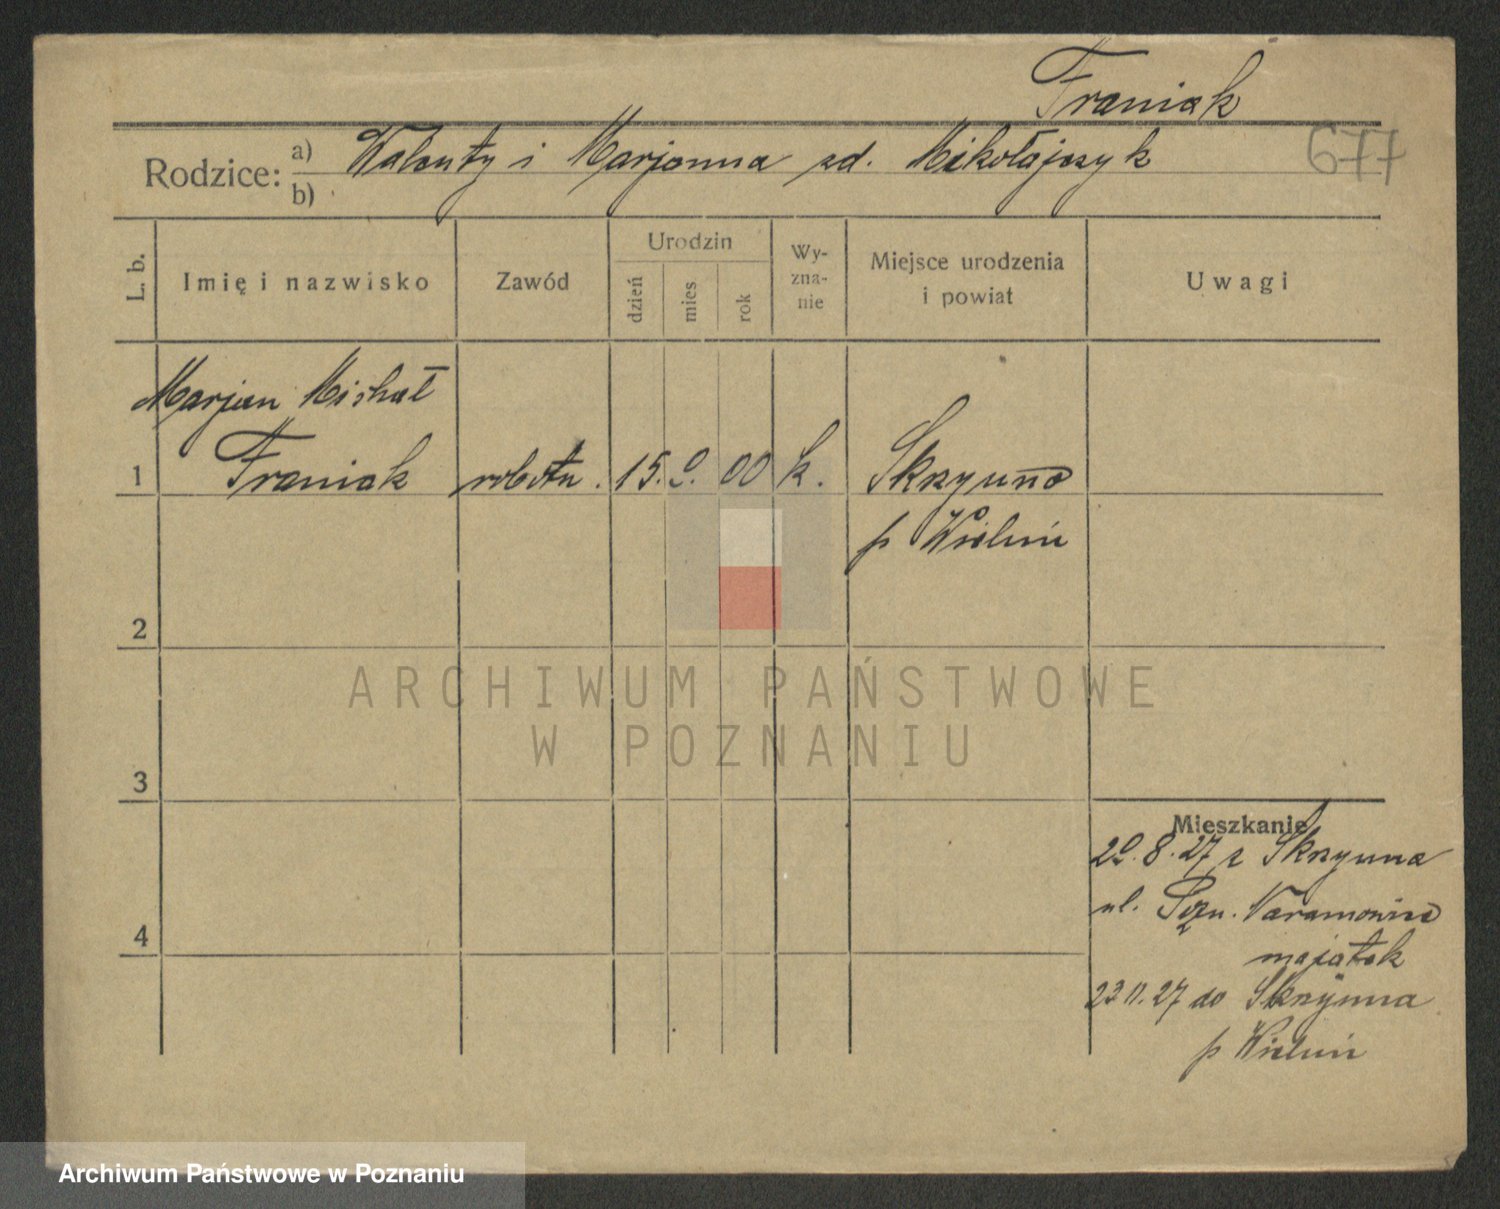 Franiak
Rodzice: a) Walenty i Marjanna zd. Mikołajczyk 677
b)
L. b. Imię i nazwisko Zawód Urodzin dzień mies rok Wy-zna-nie Miejsce urodzenia i powiat Uwagi
Marjan Michał
1 Franiak robotn. 15. 9. 00 k. Skrzynno
p Wieluń
2
ARCHIWUM PAŃSTWOWE
W POZNANIU
3
Mieszkanie
29. 8. 27 z Skrzynna
ul. Naramowice
majątek
4
23 11. 27 do Skrzynna
p Wieluń
Archiwum Państwowe w Poznaniu